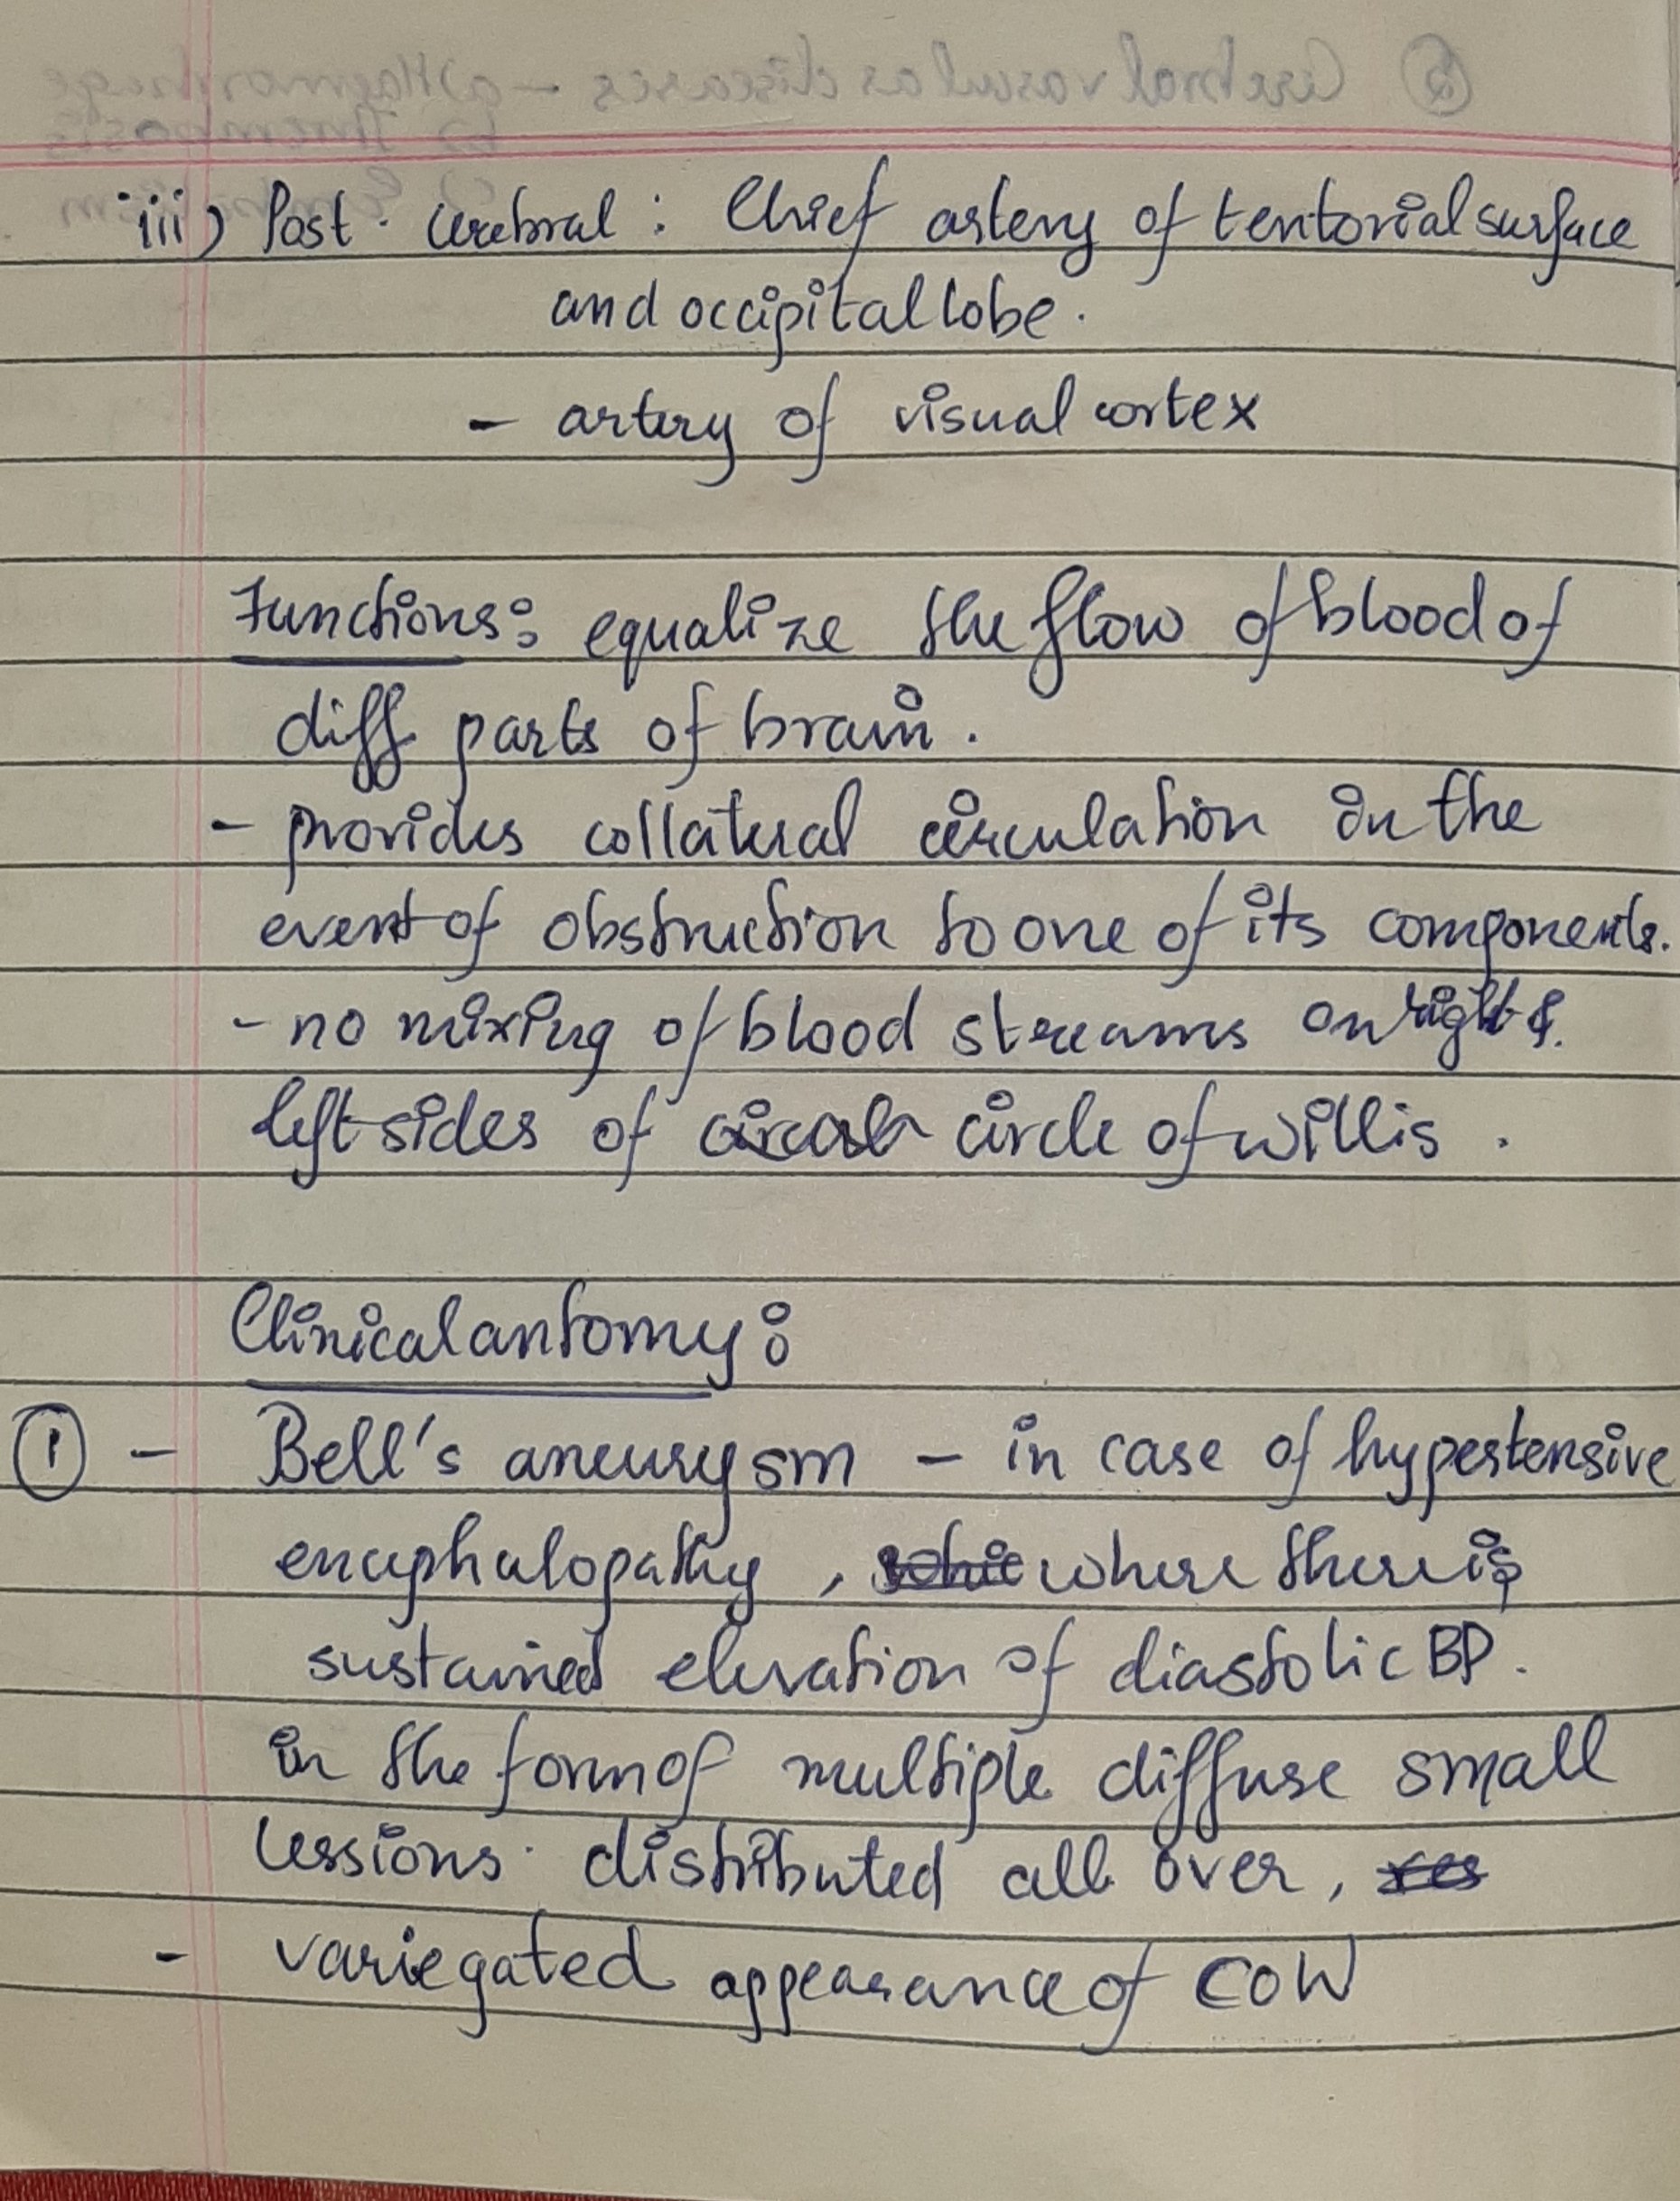 iii) Post. cerebral : Chief artery of tentorial surface
and occipital lobe.
- artery of visual cortex
Functions: equalize the flow of blood of
diff parts of brain.
- provides collateral circulation in the
event of obstruction to one of its components.
- no mixing of blood streams on right &
left sides of circle of willis.
Clinical antomy:
① - Bell's aneurysm - in case of hypertensive
encephalopathy, where there is
sustained elevation of diastolic BP.
in the form of multiple diffuse small
lessions distributed all over,
- variegated appearance of COW